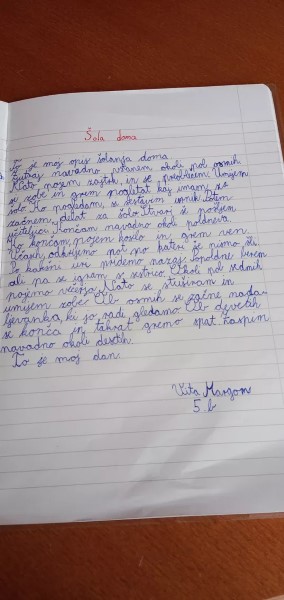 Šola doma
To je moj opis šolanja doma.
Zjutraj navadno vstanem okoli pol osmih.
Nato pojem zajtrk, in se preoblečem. Umijem
si zobe in grem pogledat kaj imam za
šolo. Ko pogledam, si sestavim urnik. Potem
začnem delat za šolo. Stvari
učiteljici. Končam navadno okoli poldneva.
Ko končam, pojem kosilo in grem ven.
Včasih odkrijemo pot po kateri še nismo šli.
Po kakšni uri pridemo nazaj. Popoldne berem
ali pa se igram s sestrico. Okoli pol sedmih
pojemo večerjo. Nato se stuširam in
umijem zobe. Ob osmih se začne nada-
ljevanka, ki jo radi gledamo. Ob devetih
se konča in takrat gremo spat. Zaspim
navadno okoli desetih.
To je moj dan.
Vita Margon
5. b